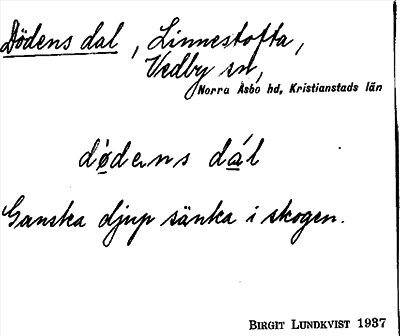 Dödens dal, Linnestofta,
Vedby sn,
Norra Åsbo hd, Kristianstads län
dødens dál
Ganska djup sänka i skogen.
BIRGIT LUNDKVIST 1937